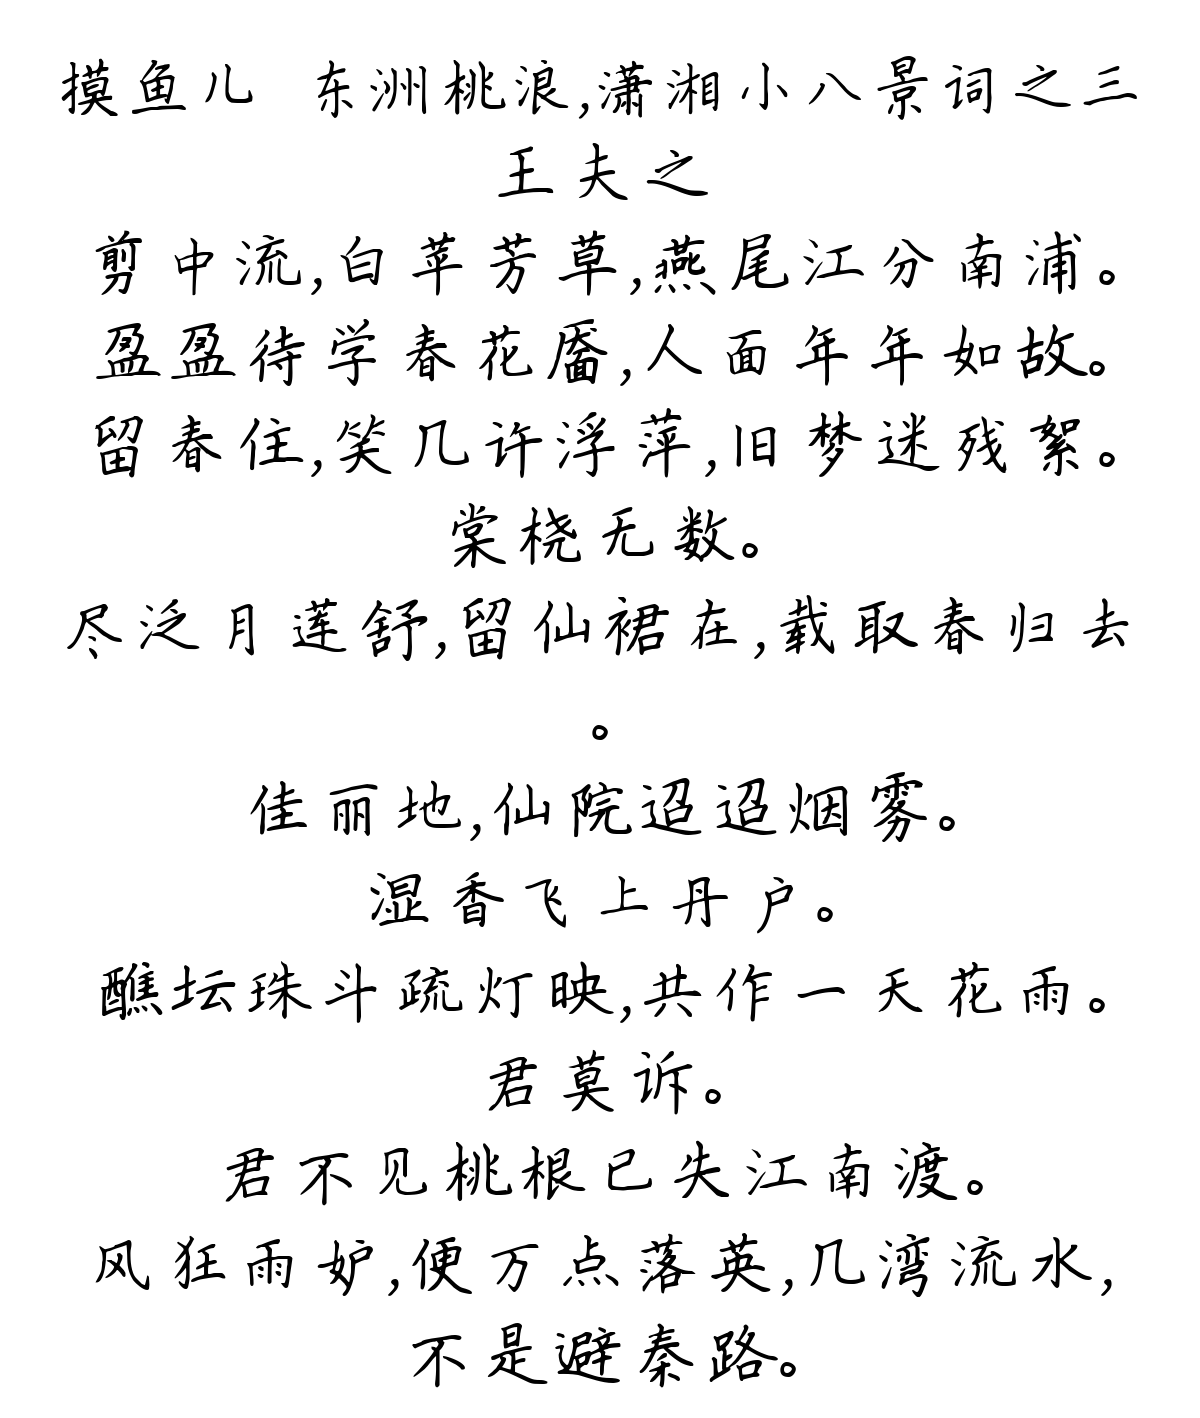 摸鱼儿 东洲桃浪,潇湘小八景词之三
王夫之
剪中流,白苹芳草,燕尾江分南浦。
盈盈待学春花靥,人面年年如故。
留春住,笑几许浮萍,旧梦迷残絮。
棠桡无数。
尽泛月莲舒,留仙裙在,载取春归去
。
佳丽地,仙院迢迢烟雾。
湿香飞上丹户。
醮坛珠斗疏灯映,共作一天花雨。
君莫诉。
君不见桃根已失江南渡。
风狂雨妒,便万点落英,几湾流水,
不是避秦路。